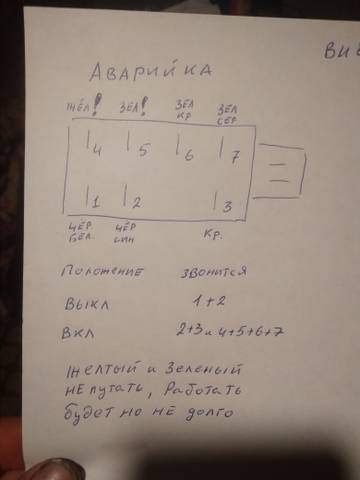 АВАРИЙКА
ЖЁЛ! ЗЕЛ! ЗЕЛ КР ЗЕЛ СЕР
4 5 6 7
1 2 3
ЧЁР БЕЛ. ЧЁР СИН КР.
Положение звонится
Выкл 1+2
Вкл 2+3 и 4+5+6+7
Желтый и Зеленый
не путать, работать
будет но не долго